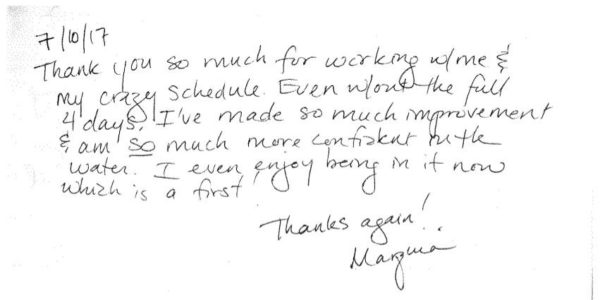 7/10/17
Thank you so much for working w/me &
my crazy schedule. Even w/out the full
4 days, I've made so much improvement
& am so much more confident in the
water. I even enjoy being in it now
which is a first!
Thanks again!